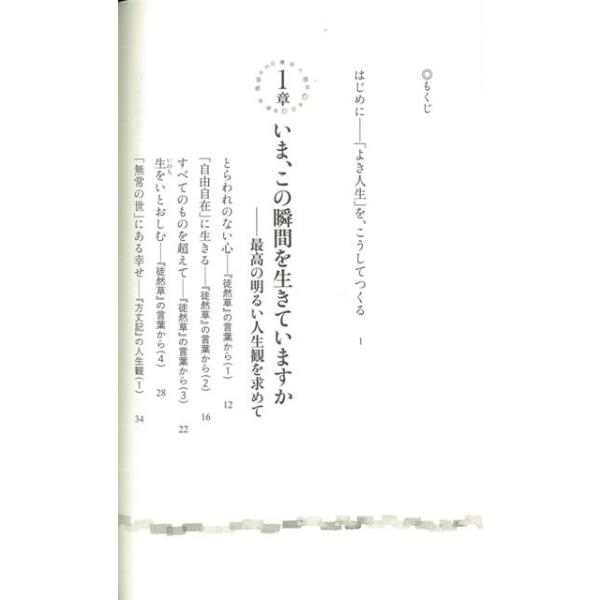 ◎もくじ
はじめに――「よき人生」を、こうしてつくる 1
1章 いま、この瞬間を生きていますか
――最高の明るい人生観を求めて
とらわれのない心――『徒然草』の言葉から(1) 12
「自由自在」に生きる――『徒然草』の言葉から(2) 16
すべてのものを超えて――『徒然草』の言葉から(3) 22
生をいとおしむ――『徒然草』の言葉から(4) 28
いのち
「無常の世」にある幸せ――『方丈記』の人生観(1) 34